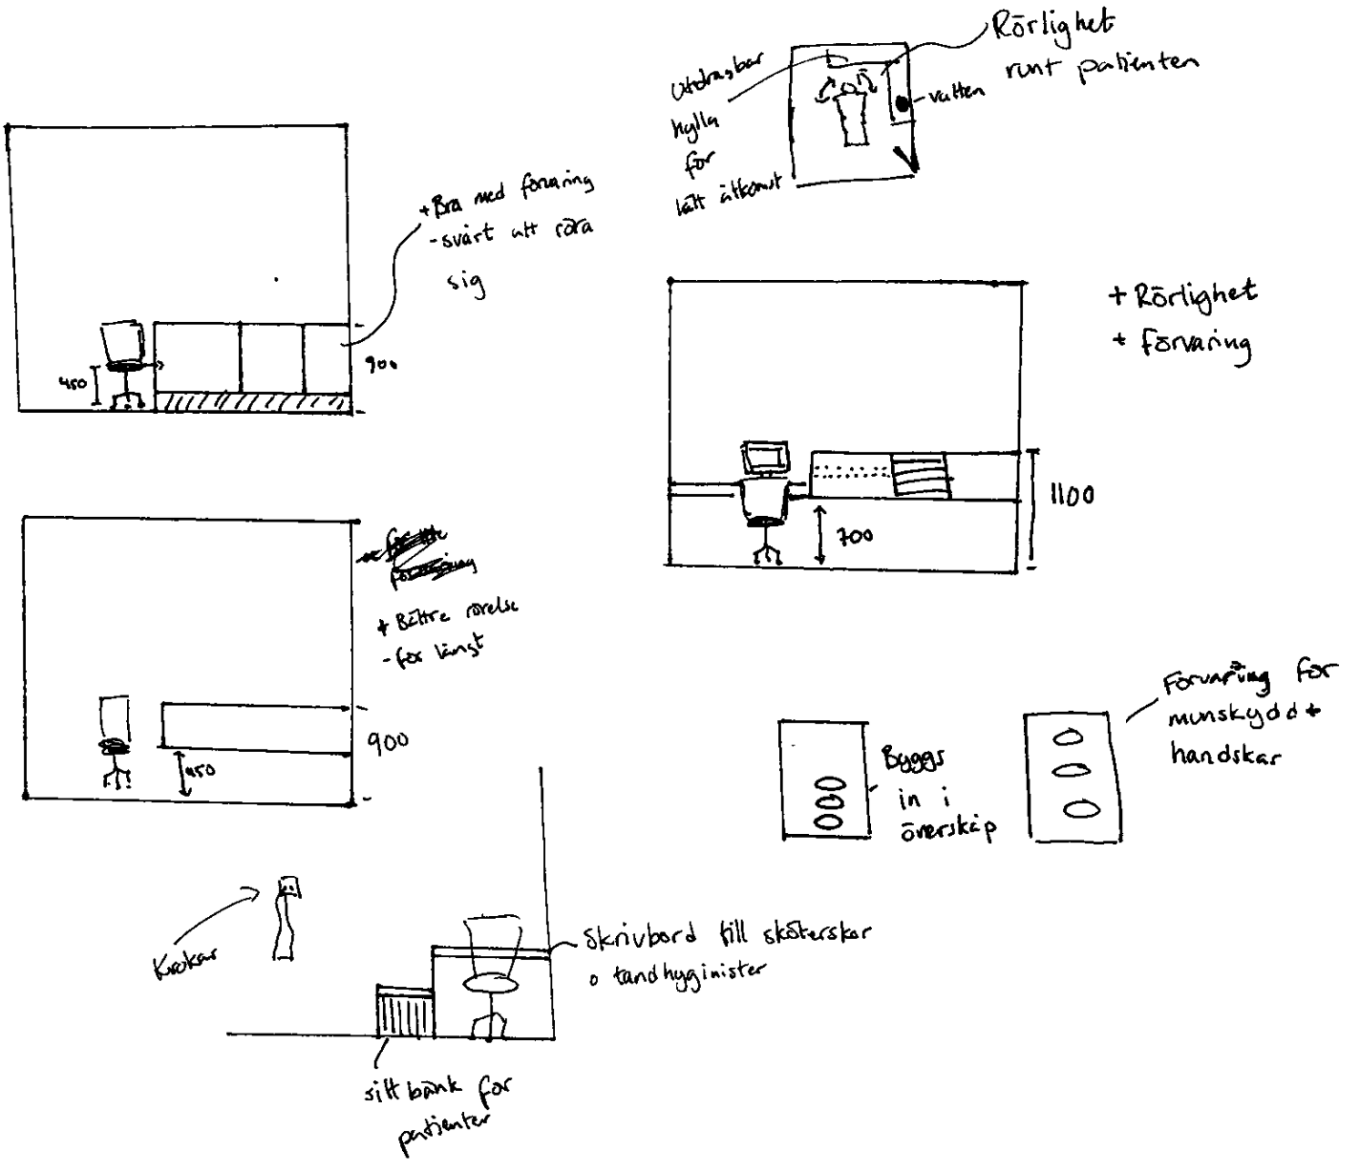 Utdragbar
hylla
för
lätt åtkomst
Rörlighet
runt patienten
vatten
+ Bra med förvaring
- svårt att röra
sig
450
900
+ Rörlighet
+ Förvaring
1100
700
+ Bättre rörelse
- för långt
450
900
Byggs
in i
överskåp
Förvaring för
munskydd +
handskar
Krokar
Skrivbord till sköterskor
o tandhyginister
sittbänk för
patienter